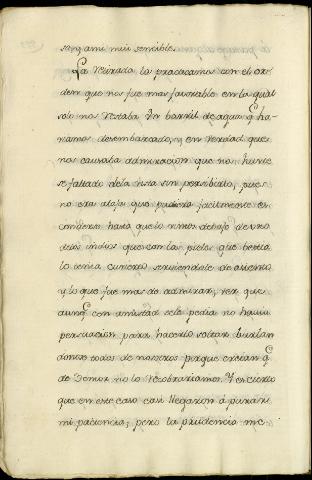 sang ami mui sencible.
La retirada la practicamos con el or-
den que nos fue mas favorable en la qual
solo nos restaba Un barril de agua q̃ ha-
viamos desembarcado, y en verdad que
nos causaba admiracion que nos huvie-
se faltado dela vista sin persibirlo, pues
no era alaja que pudiera facilmente es-
conderse hasta que lo vimos debajo de uno
delos indios que con las pieles que bestia
lo tenia cubierto serviendole de asiento
y lo que fue mas de admirar, ver que
aunq̃ con amistad sele pedia no havia
persuacion para hacerlo soltar burlan
donos todos de nosotros porque creían q̃
de temor no lo recobrariamos. Y en cierto
que en este caso casi llegaron á purar-
mi paciencia; pero la prudencia me